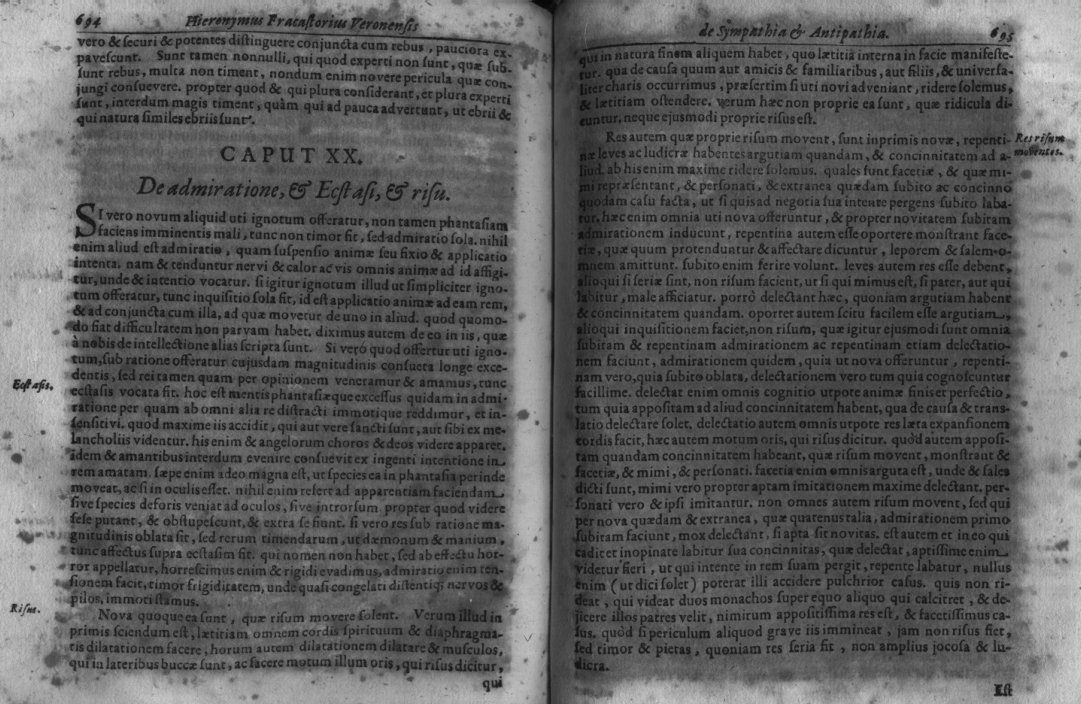 694 Hieronymus Fracastorius Veronensis
vero & securi & potentes distinguere conjuncta cum rebus, pauciora ex-
pavescunt. Sunt tamen nonnulli, qui quod experti non sunt, quæ sub-
sunt rebus, multa non timent, nondum enim novere pericula quæ con-
jungi consuevere. propter quod & qui plura considerant, et plura experti
sunt, interdum magis timent, quàm qui ad pauca advertunt, ut ebrii &
qui natura similes ebriis sunt.
CAPUT XX.
De admiratione, & Ecstasi, & risu.
SI vero novum aliquid uti ignotum offeratur, non tamen phantasiam
faciens imminentis mali, tunc non timor fit, sed admiratio sola. nihil
enim aliud est admiratio, quam suspensio animæ seu fixio & applicatio
intenta. nam & tenduntur nervi & calor ac vis omnis animæ ad id affigi-
tur, unde & intentio vocatur. si igitur ignotum illud ut simpliciter igno-
tum offeratur, tunc inquisitio sola fit, id est applicatio animæ ad eam rem,
& ad conjuncta cum illa, ad quæ movetur de uno in aliud. quod quomo-
do fiat difficultatem non parvam habet. diximus autem de eo in iis, quæ
à nobis de intellectione alias scripta sunt. Si verò quod offertur uti igno-
tum, sub ratione offeratur cujusdam magnitudinis consueta longe exce-
dentis, sed rei tamen quam per opinionem veneramur & amamus, tunc
Ecstasis.
ecstasis vocata fit. hoc est mentis phantasiæque excessus quidam in admi-
ratione per quam ab omni alia re distracti immotique reddimur, et in-
sensitivi. quod maxime iis accidit, qui aut vere sancti sunt, aut sibi ex me-
lancholiis videntur. his enim & angelorum choros & deos videre apparet.
idem & amantibus interdum evenire consuevit ex ingenti intentione in
rem amatam. sæpe enim adeo magna est, ut species ea in phantasia perinde
moveat, ac si in oculis esset. nihil enim refert ad apparentiam faciendam
sive species deforis veniat ad oculos, sive introrsum propter quod videre
sese putant, & obstupescunt, & extra se fiunt. si vero res sub ratione ma-
gnitudinis oblata sit, sed rerum timendarum, ut dæmonum & manium,
tunc affectus supra ecstasim fit. qui nomen non habet, sed ab effectu hor-
ror appellatur, horrescimus enim & rigidi evadimus, admiratio enim ten-
sionem facit, timor frigiditatem, unde quasi congelati distentiq; nervos &
pilos, immoti stamus.
Risus.
Nova quoque ea sunt, quæ risum movere solent. Verum illud in
primis sciendum est, lætitiam omnem cordis spirituum & diaphragma-
tis dilatationem facere, horum autem dilatationem dilatare & musculos,
qui in lateribus buccæ sunt, ac facere motum illum oris, qui risus dicitur,
qui
de Sympathia & Antipathia. 695
qui in natura finem aliquem habet, quo lætitia interna in facie manifeste-
tur. qua de causa quum aut amicis & familiaribus, aut filiis, & universa-
liter charis occurrimus, præsertim si uti novi adveniant, ridere solemus,
& lætitiam ostendere. verum hæc non proprie ea sunt, quæ ridicula di-
cuntur, neque ejusmodi proprie risus est.
Res autem quæ proprie risum movent, sunt inprimis novæ, repenti-
Res risum
moventes.
næ leves ac ludicræ habentes argutiam quandam, & concinnitatem ad a-
liud. ab his enim maxime ridere solemus. quales sunt facetiæ, & quæ mi-
mi repræsentant, & personati, & extranea quædam subito ac concinno
quodam casu facta, ut si quis ad negotia sua intente pergens subito laba-
tur. hæc enim omnia uti nova offeruntur, & propter novitatem subitam
admirationem inducunt, repentina autem esse oportere monstrant face-
tiæ, quæ quum protenduntur & affectare dicuntur, leporem & salem o-
mnem amittunt. subito enim ferire volunt. leves autem res esse debent,
alioqui si seriæ sint, non risum facient, ut si qui mimus est, si pater, aut qui
labitur, male afficiatur. porrò delectant hæc, quoniam argutiam habent
& concinnitatem quandam. oportet autem scitu facilem esse argutiam,
alioqui inquisitionem faciet, non risum, quæ igitur ejusmodi sunt omnia
subitam & repentinam admirationem ac repentinam etiam delectatio-
nem faciunt, admirationem quidem, quia ut nova offeruntur, repenti-
nam vero, quia subito oblata, delectationem vero tum quia cognoscuntur
facillime. delectat enim omnis cognitio utpote animæ finis et perfectio,
tum quia appositam ad aliud concinnitatem habent, qua de causa & trans-
latio delectare solet. delectatio autem omnis utpote res læta expansionem
cordis facit, hæc autem motum oris, qui risus dicitur. quòd autem apposi-
tam quandam concinnitatem habeant, quæ risum movent, monstrant &
facetiæ, & mimi, & personati. facetia enim omnis arguta est, unde & sales
dicti sunt, mimi vero propter aptam imitationem maxime delectant. per-
sonati vero & ipsi imitantur. non omnes autem risum movent, sed qui
per nova quædam & extranea, quæ quatenus talia, admirationem primo
subitam faciunt, mox delectant, si apta sit novitas. est autem et in eo qui
cadit et inopinate labitur sua concinnitas, quæ delectat, aptissime enim
videtur fieri, ut qui intente in rem suam pergit, repente labatur, nullus
enim (ut dici solet) poterat illi accidere pulchrior casus. quis non ri-
deat, qui videat duos monachos super equo aliquo qui calcitret, & de-
jicere illos patres velit, nimirum appositissima res est, & facetissimus ca-
sus. quòd si periculum aliquod grave iis immineat, jam non risus fiet,
sed timor & pietas, quoniam res seria fit, non amplius jocosa & lu-
dicra.
Est